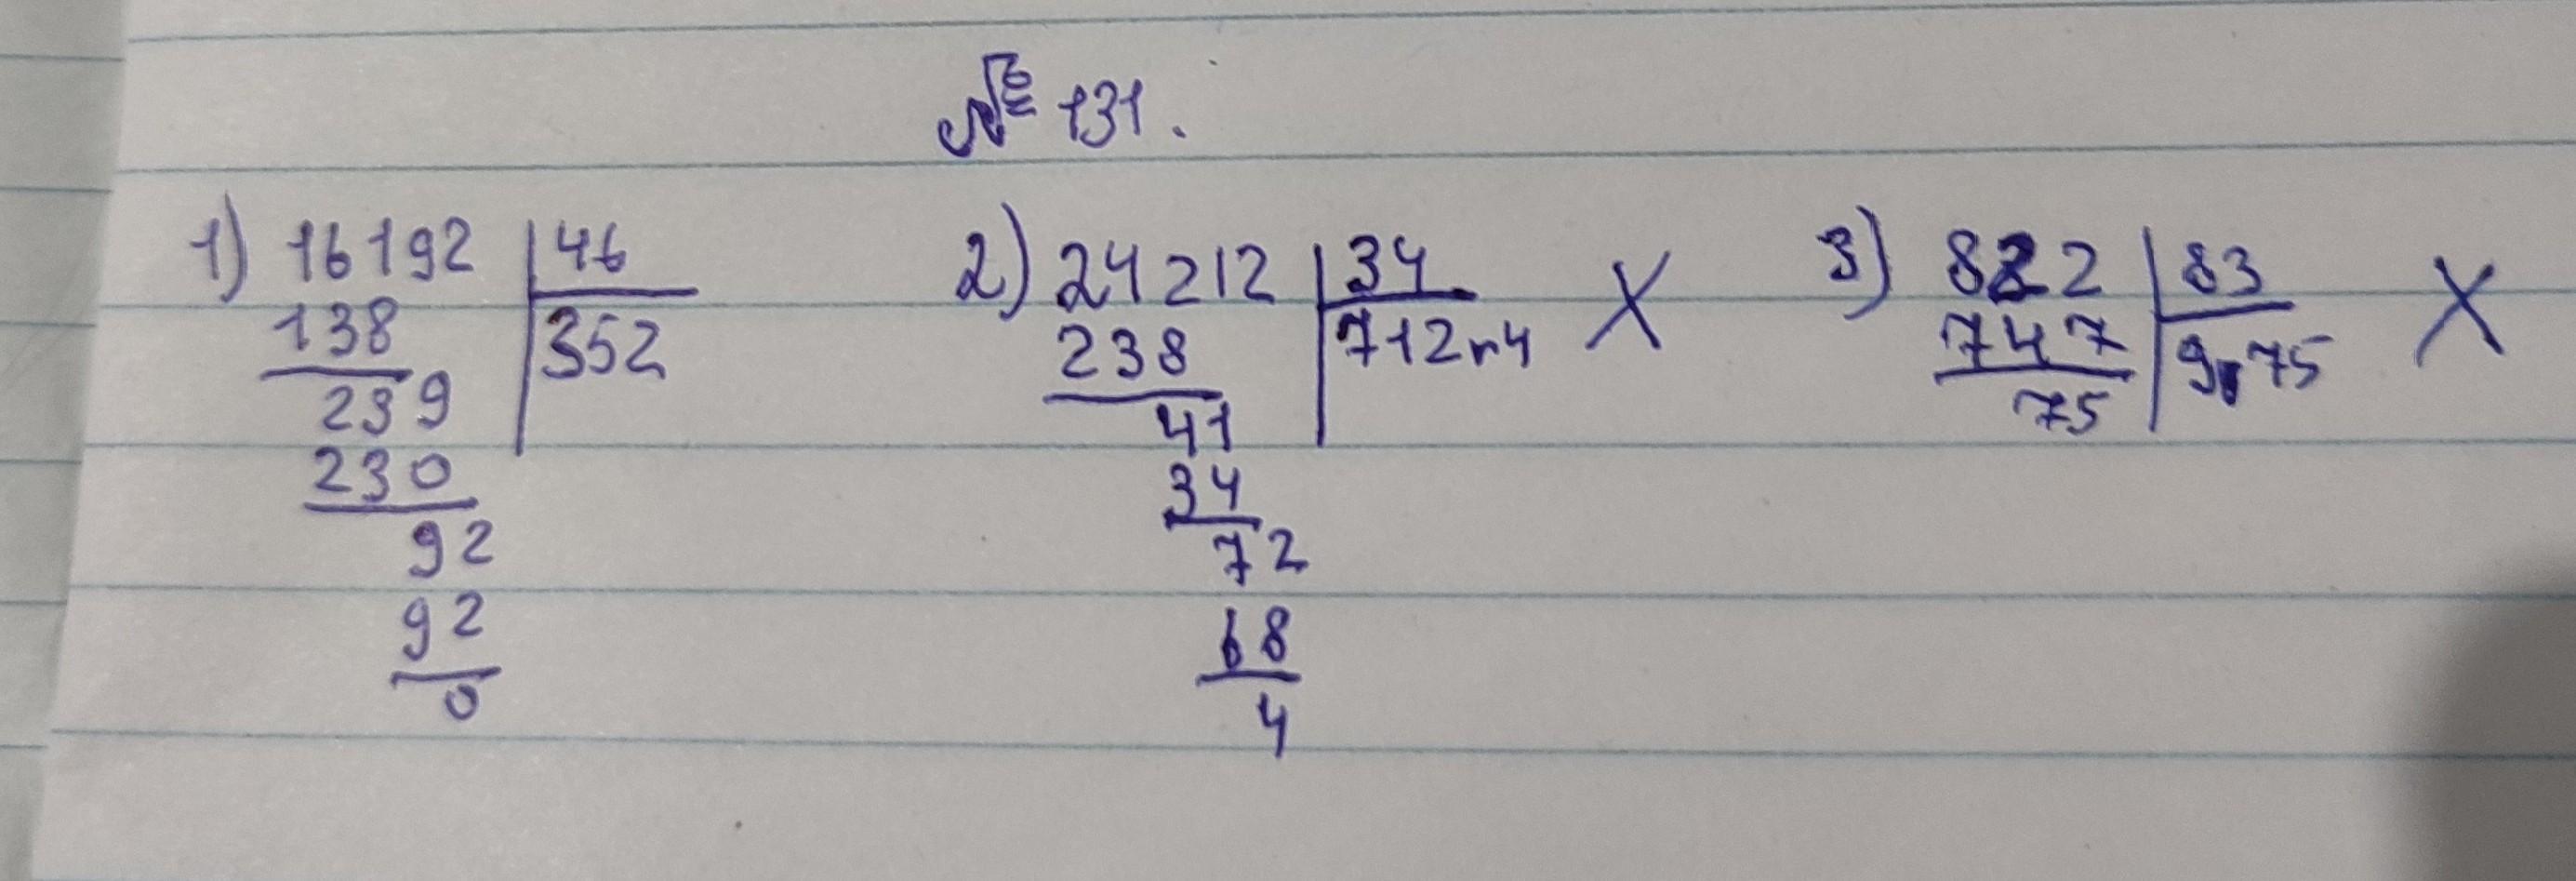 № 131.
1) 16192 | 46
138 | 352
239
230
92
92
0
2) 24212 | 34 X
238 | 712r4
41
34
72
68
4
3) 822 | 83 X
747 | 9r75
75